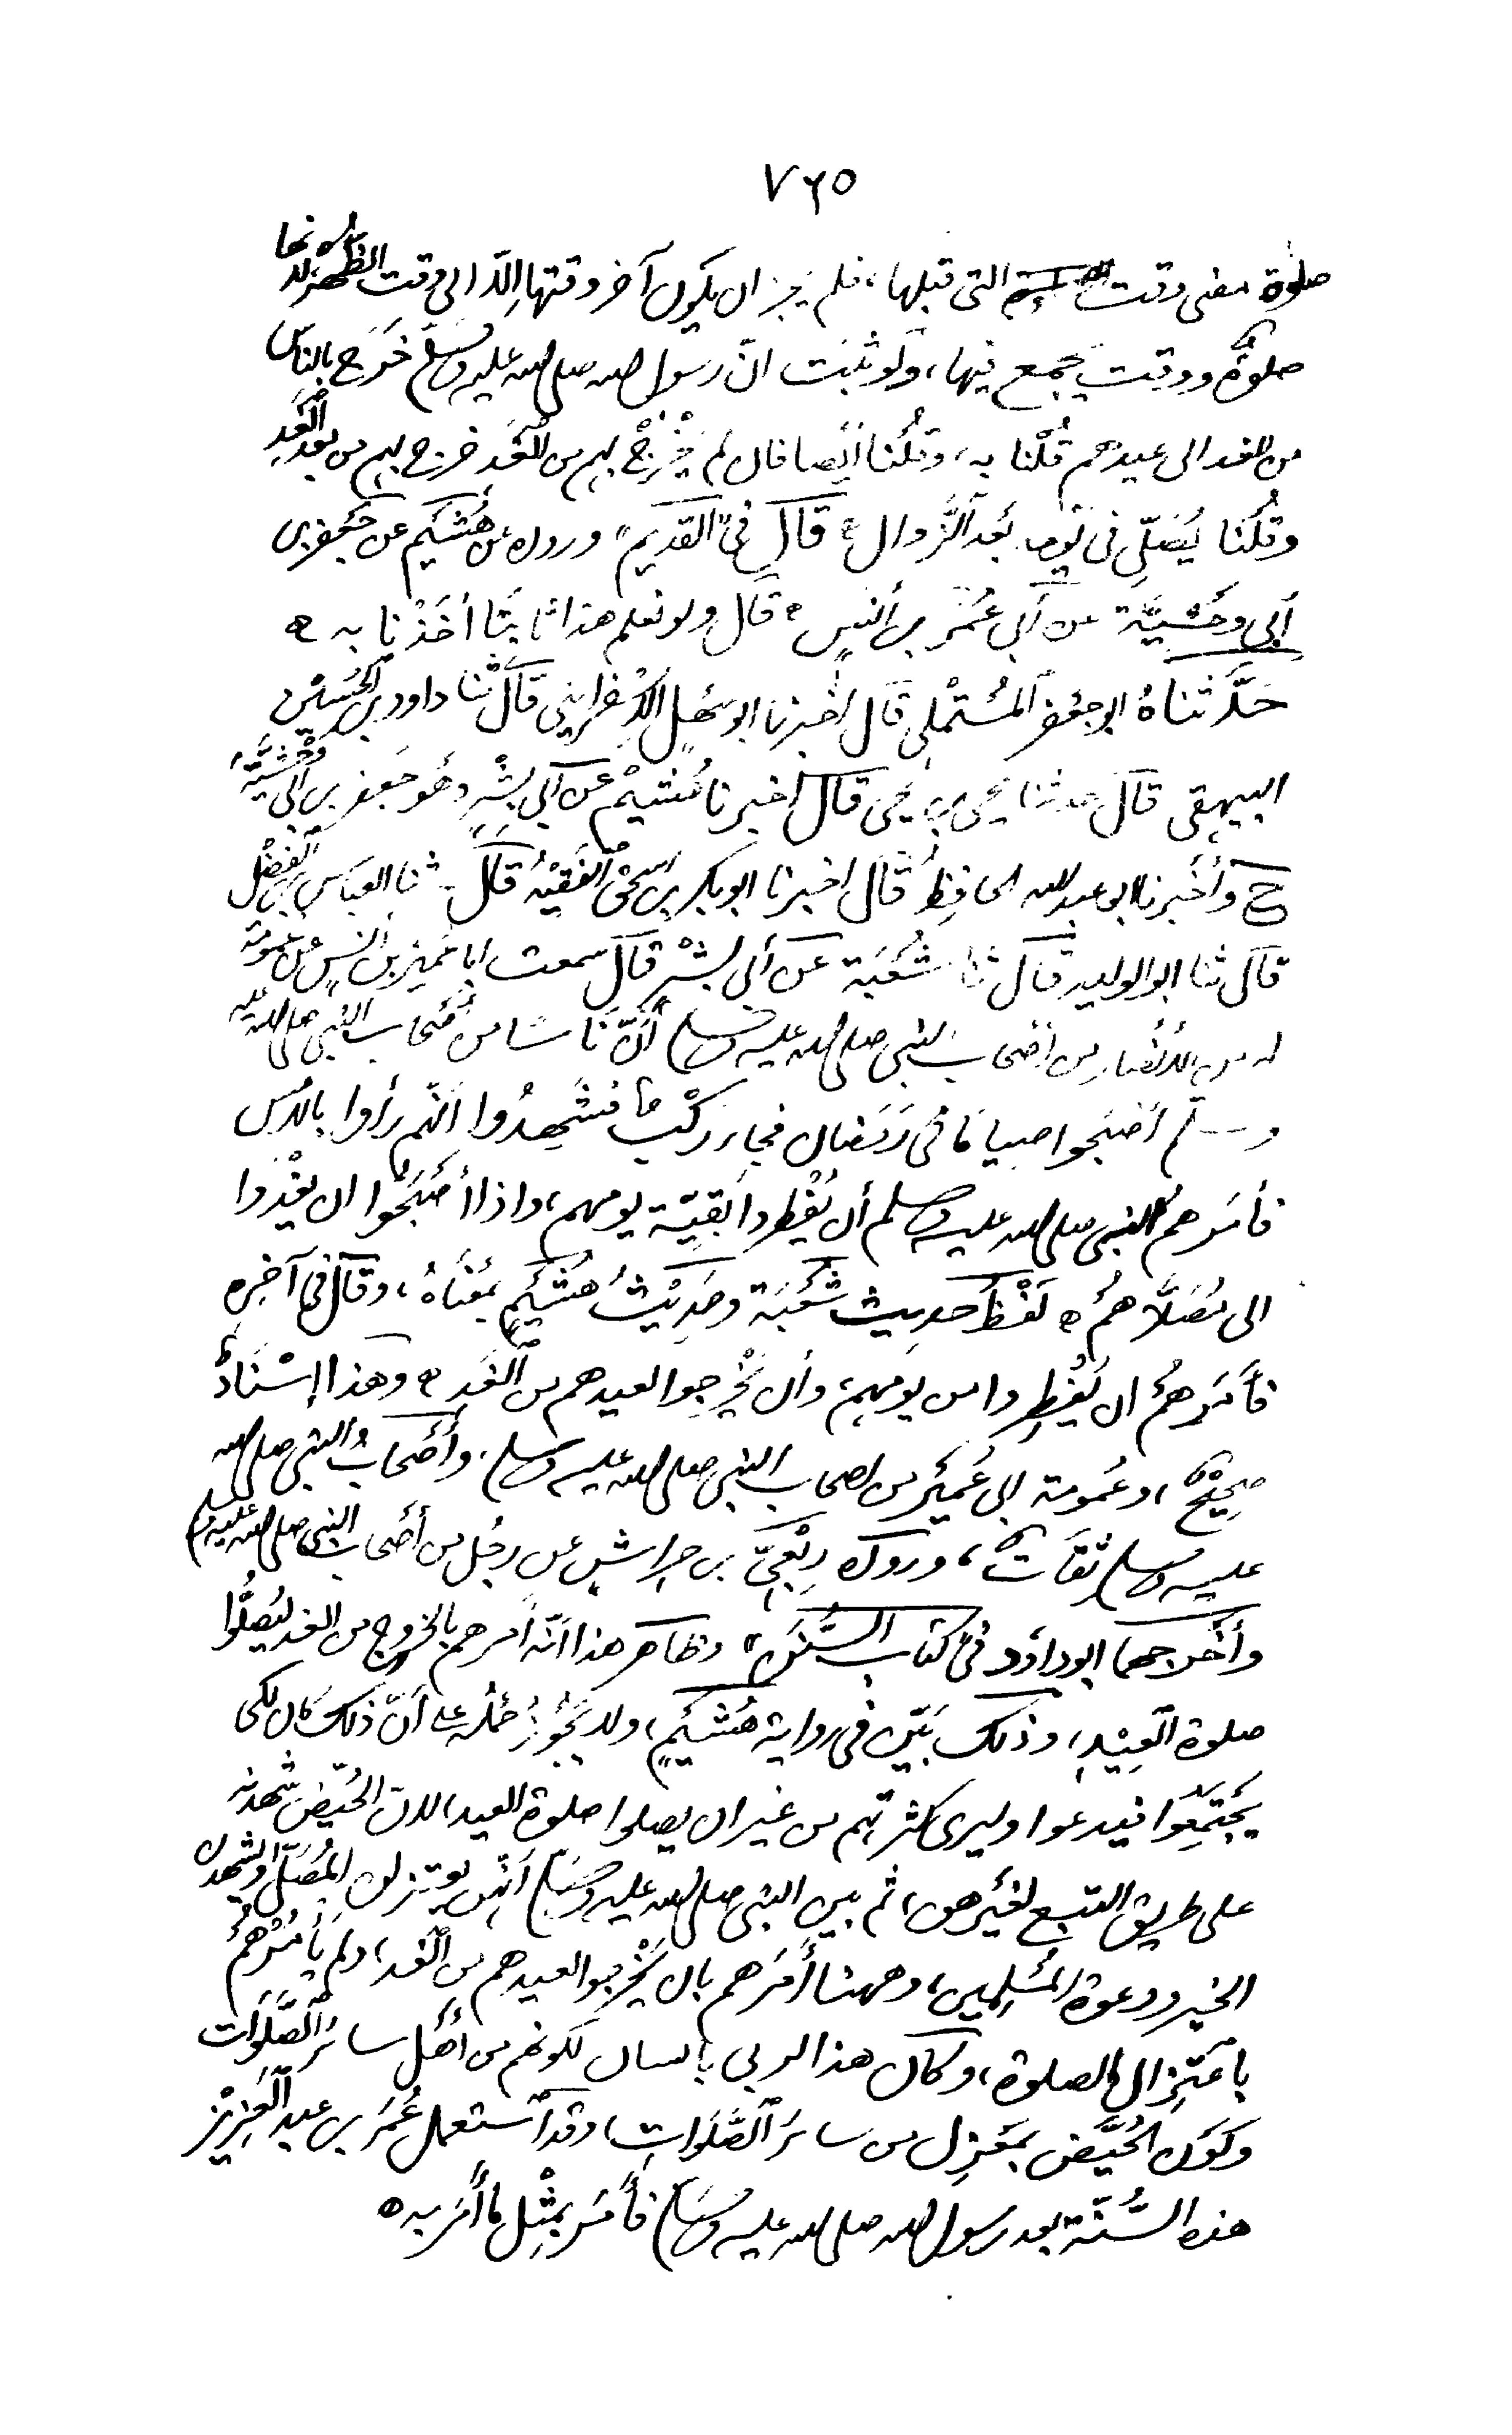 ٧٦٥
صلوة مضى وقت التى قبلها، فلم يجز ان يكون آخر وقتها إلّا الى وقت الظُّهر، لانها
صلوةٌ ووقت يجمع فيها، ولو ثبَت انّ رسول الله صلى الله عليه وسلّم خَرَج بالناس
من الغد الى عيدهم قُلْنا به، وقُلْنا ايْضا فان لم يَخْرُجْ بهم من الْغَدِ خرج بهم من بعد الْغَدِ
وقُلنا يُصَلِّي فى يومه بَعْد الزَّوال، قال فى "القديم" وروى عن هُشَيْم عن جَعْفر بن
أبى وَحْشِيَّة عن أبى عُمَيْر بن أنَسٍ، قال ولو نعلم هذا ثابتًا أخَذْنا به ه
حَدَّثناهُ ابو جعْفر المُسْتَمْلى قال اخبرنا ابو سَهْل الاسْفرايينى قال ثنا داود بن الحُسَيْن
البيهقى قال حدثنا يحيى بن يحيى قال اخبرنا هُشيْم عن أبى بِشْرٍ وهُو جَعفر بن أبى وَحْشِيَّة،
ح وأَخْبرنا ابو عبد الله الحافِظُ قال اخبرنا ابو بكر بن اسحٰق الفَقِيْهُ قال ثنا العباس بن الفَضْل
قال ثنا ابو الوليد قال ثنا شُعْبَة عن أبى بِشْر قال سمعت ابا عُميْر بن أنسٍ عن عمومة
له من الأنْصار من أصْحاب النبى صلى الله عليه وسلم أنّ ناسًا من أصْحاب النبى صلى الله عليه
وسلّم أصْبَحوا صياما فى رَمَضان فجاء رَكْب فشَهِدُوا انّهم رأوا بالامس
فأمَرهم النبى صلى الله عليه وسلم أن يُفْطِروا بَقِيّة يومهم، واذا أصْبَحُوا ان يغْدوا
الى مُصَلّاهُمْ ه لَفْظُ حديث شُعْبَة وحَدِيْثُ هُشَيْمٍ بمعْناهُ، وقال فى آخِرِه
فأمَرهُمْ ان يُفْطِروا من يومِهِم، وأن يَخْرجوا لعيدهم من الْغَدِ ه وهذا إسْنادٌ
صحِيْحٌ، وعُمومة ابى عُمَيْر من اصحاب النبى صلى الله عليه وسلم، وأصْحابُ النبى صلى الله
عليه وسلم ثِقَاتٌ، وروى رِبْعِيّ بن حِراشٍ عن رجُل من أصْحاب النبى صلى الله عليه وسلم
وأخْرجهما ابو داؤد فى "كتاب السُّنَن" وظاهر هذا أنّه أمرهم بالخروج من الغد ليُصَلُّوا
صلوة الْعِيْدِ، وذلك بَيّن فى رواية هُشَيْمٍ، ولا يَجُوْزُ حَمْله على أنّ ذلك كان لكى
يجْتَمِعُوا فيدعوا وليرى كثرتهم من غير ان يصلوا صلوة العيد، لان الحُيَّض شهدنه
على طريق التبع لغيْرهن، ثم بين النبى صلى الله عليه وسَلم أنّهن يعتزلن المُصَلّى ويشهدن
الخير ودعوة المُسلِمين، وههنا أمَرهم بان يَخْرجوا لعيدهم من الْغد، ولم يأمُرْهُمْ
باعتِزال الصلوة، وكان هذا لكونهم من اهْل سائر الصَّلَوات
وكون الحُيَّض بمَعْزِل من سائر الصَّلَوات، وقد استعمل عُمَر بن عبد الْعَزِيْز
هذه السُّنّة بعد رسول الله صلى الله عليه وسلم فأمَر بمثْل ما أمَر به ه